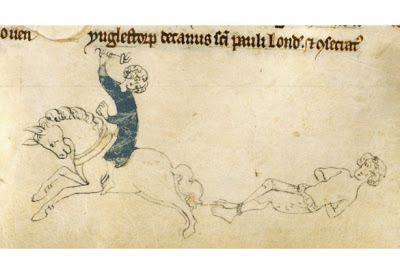 ouen ynglestorp decanus sc̄i pauli Lond'. ⁊ ꝯsecrat'